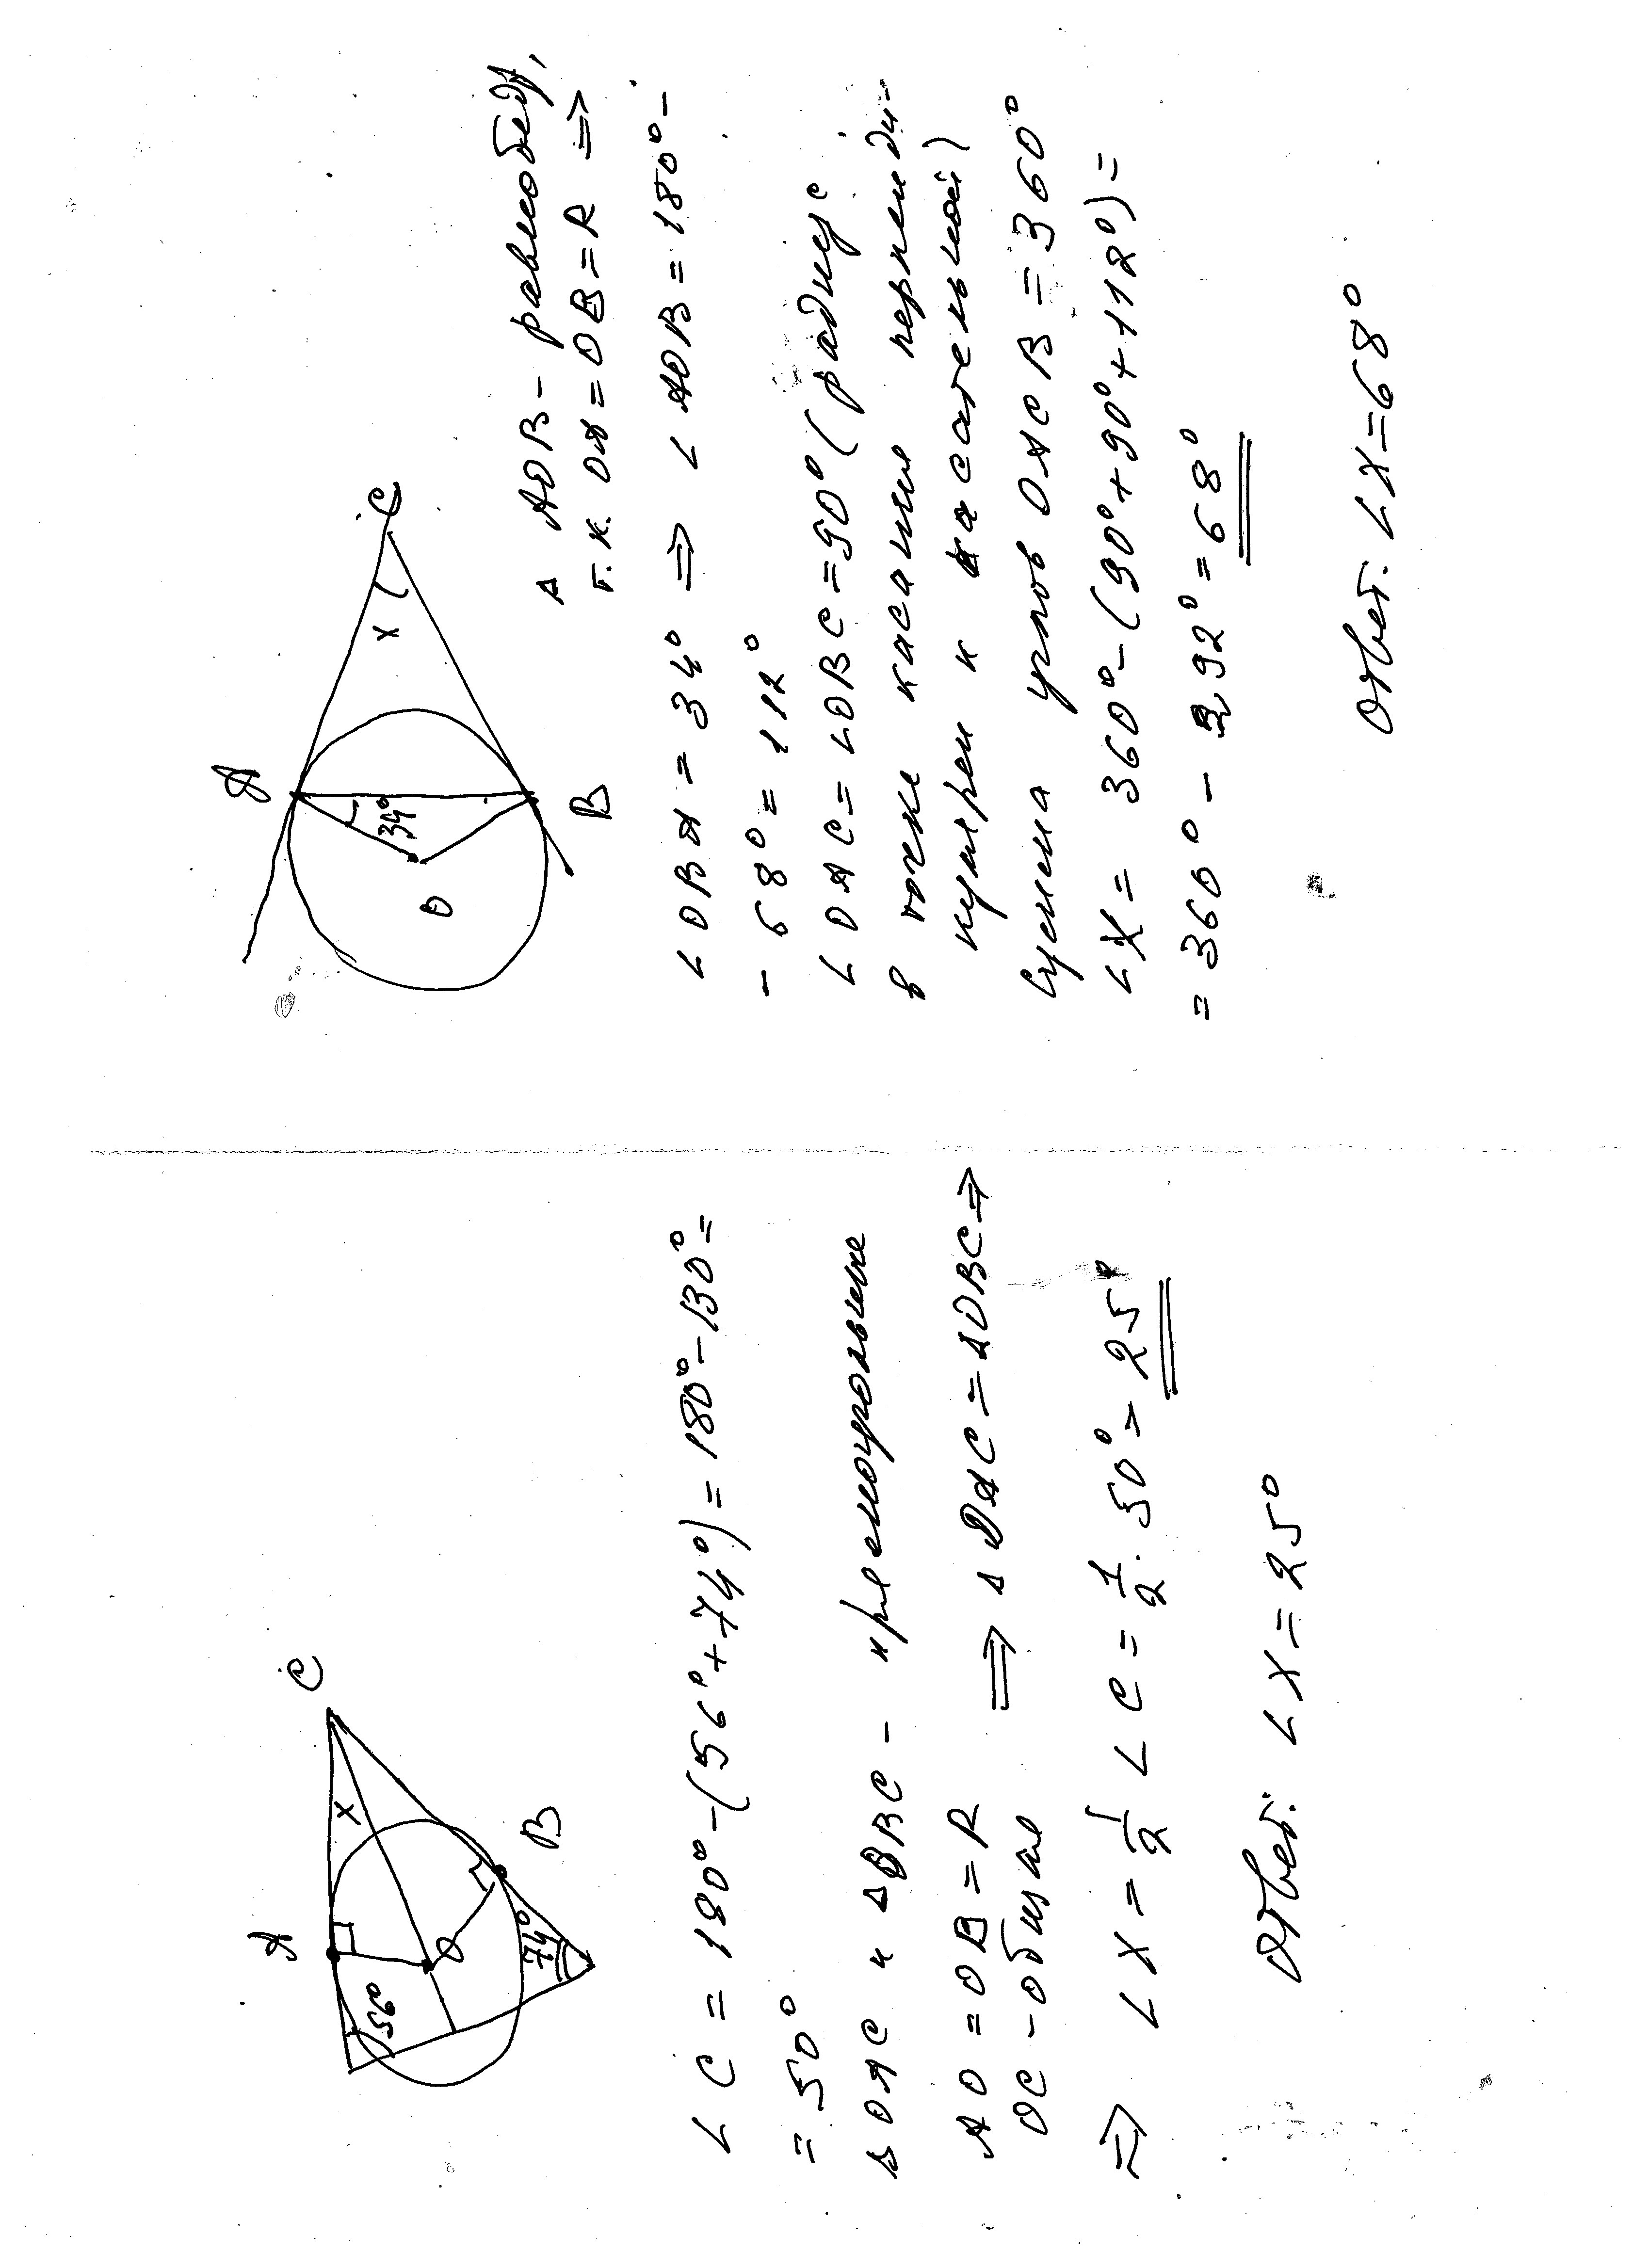 A
C
x
56°
O
B
74°
∠C = 180° - (56° + 74°) = 180° - 130° =
= 50°
△OAC и △BBC - прямоугольные
AO = OB = R
OC - общая
⟹ △OAC = △OBC ⟹
⟹ ∠X = 1/2 ∠C = 1/2 · 50° = 25°
Ответ: ∠X = 25°
A
C
x
34°
O
B
△ AOB - равнобедр,
т.к. OA = OB = R ⟹
∠OBA = 34° ⟹ ∠AOB = 180° -
- 68° = 112°
∠OAC = ∠OBC = 90° (радиус
в точке касания перпенди-
кулярен к касательной)
Сумма углов OACB = 360°
∠X = 360° - (90° + 90° + 112°) =
= 360° - 292° = 68°
Ответ: ∠X = 68°